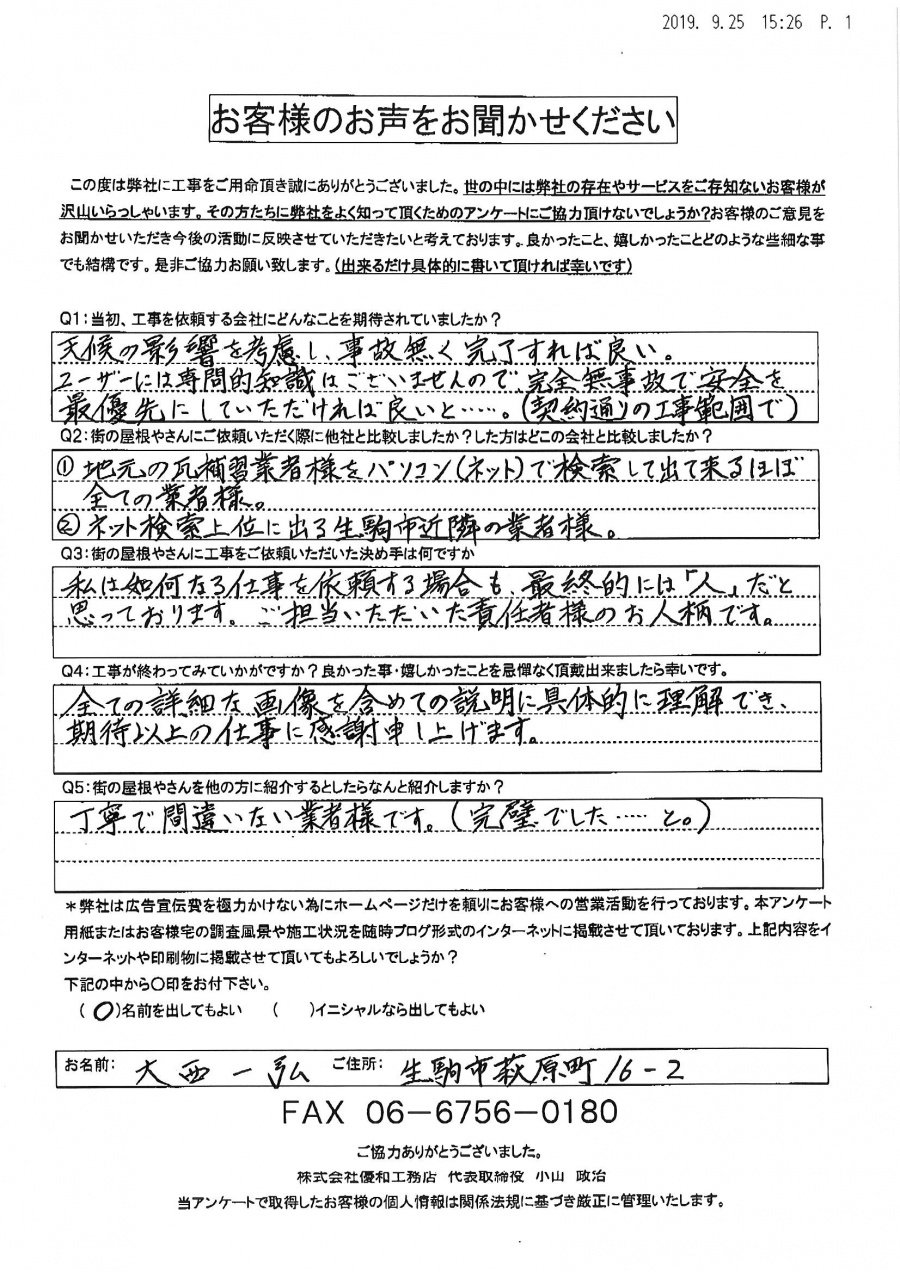 2019. 9.25 15:26 P. 1
お客様のお声をお聞かせください
この度は弊社に工事をご用命頂き誠にありがとうございました。世の中には弊社の存在やサービスをご存知ないお客様が
沢山いらっしゃいます。その方たちに弊社をよく知って頂くためのアンケートにご協力頂けないでしょうか?お客様のご意見を
お聞かせいただき今後の活動に反映させていただきたいと考えております。良かったこと、嬉しかったことどのような些細な事
でも結構です。是非ご協力お願い致します。(出来るだけ具体的に書いて頂ければ幸いです)
Q1:当初、工事を依頼する会社にどんなことを期待されていましたか?
天候の影響を考慮し、事故無く完了すれば良い。
ユーザーには専問的知識はございませんので完全無事故で安全を
最優先にしていただければ良いと……。(契約通りの工事範囲で)
Q2:街の屋根やさんにご依頼いただく際に他社と比較しましたか?した方はどこの会社と比較しましたか?
① 地元の瓦補習業者様をパソコン(ネット)で検索して出て来るほぼ
全ての業者様。
② ネット検索上位に出る生駒市近隣の業者様。
Q3:街の屋根やさんに工事をご依頼いただいた決め手は何ですか
私は如何なる仕事を依頼する場合も、最終的には「人」だと
思っております。ご担当いただいた責任者様のお人柄です。
Q4:工事が終わってみていかがですか?良かった事・嬉しかったことを忌憚なく頂戴出来ましたら幸いです。
全ての詳細な画像を含めての説明に具体的に理解でき、
期待以上の仕事に感謝申し上げます。
Q5:街の屋根やさんを他の方に紹介するとしたらなんと紹介しますか?
丁寧で間違いない業者様です。(完璧でした……と。)
*弊社は広告宣伝費を極力かけない為にホームページだけを頼りにお客様への営業活動を行っております。本アンケート
用紙またはお客様宅の調査風景や施工状況を随時ブログ形式のインターネットに掲載させて頂いております。上記内容をイ
ンターネットや印刷物に掲載させて頂いてもよろしいでしょうか?
下記の中から〇印をお付下さい。
(〇)名前を出してもよい ( )イニシャルなら出してもよい
お名前: 大西一弘 ご住所: 生駒市萩原町16-2
FAX 06-6756-0180
ご協力ありがとうございました。
株式会社優和工務店 代表取締役 小山 政治
当アンケートで取得したお客様の個人情報は関係法規に基づき厳正に管理いたします。